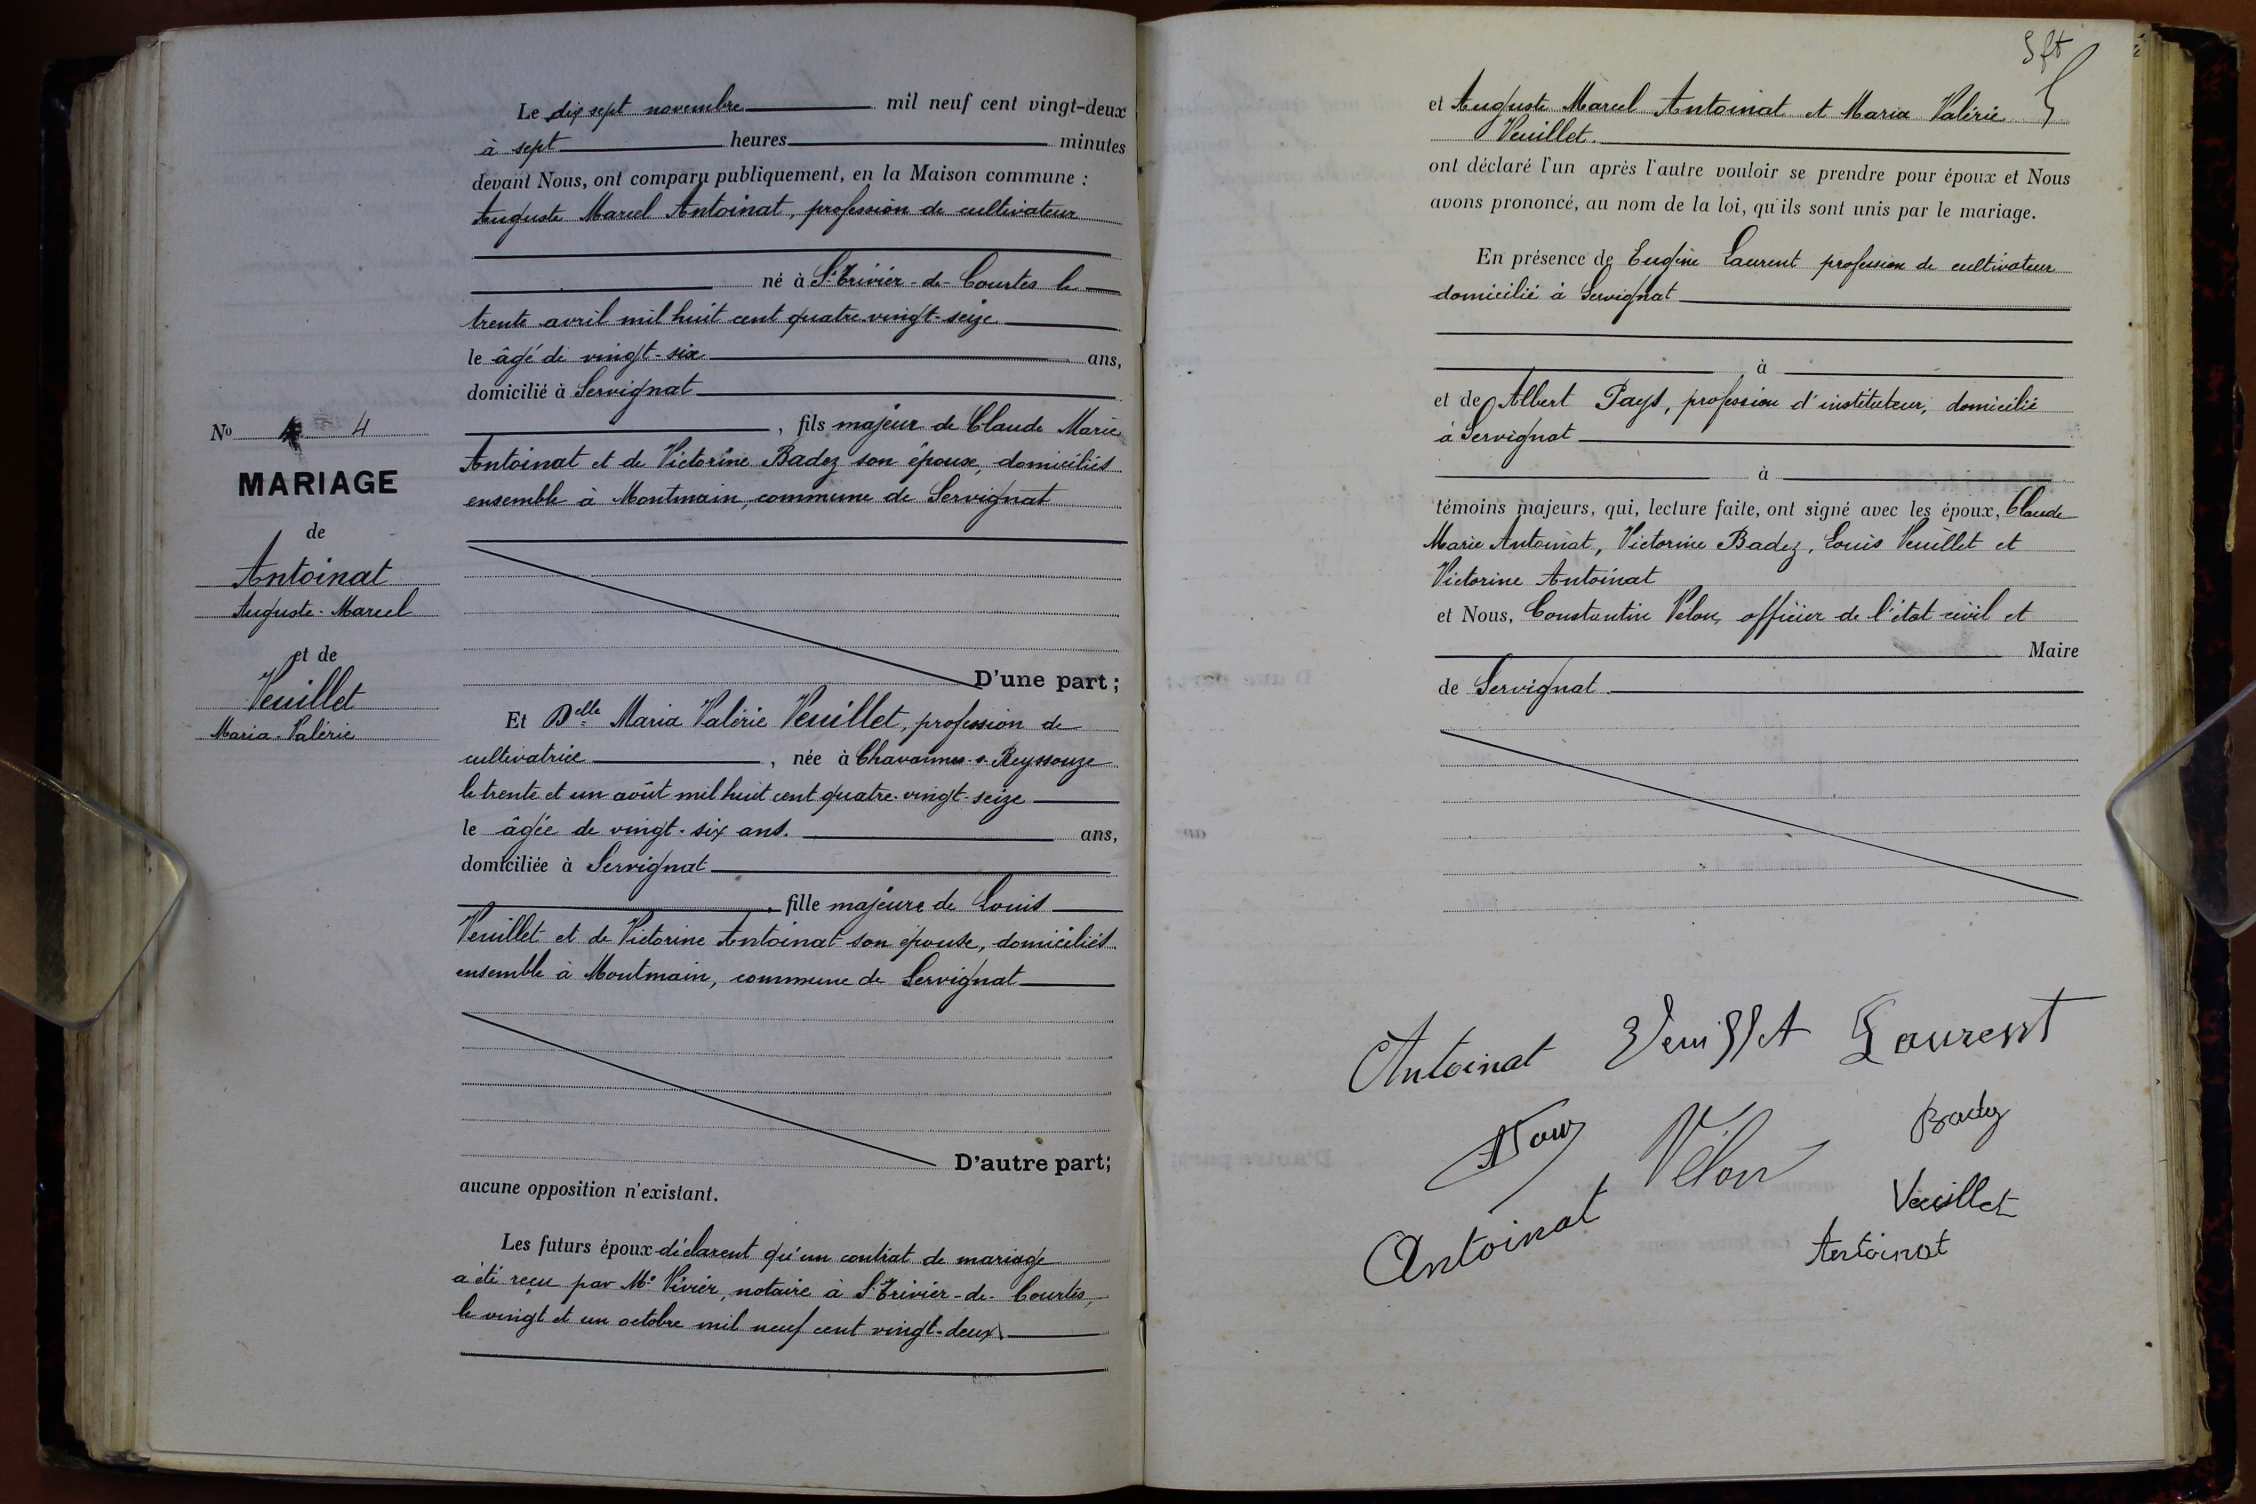 Le dix sept novembre mil neuf cent vingt-deux
à sept heures minutes
devant Nous, ont comparu publiquement, en la Maison commune :
Auguste Marcel Antoinat, profession de cultivateur
né à St Trivier-de-Courtes le
trente avril mil huit cent quatre-vingt-seize
le âgé de vingt-six ans,
domicilié à Servignat
, fils majeur de Claude Marie
Antoinat et de Victorine Badez son épouse, domiciliés
ensemble à Montmain, commune de Servignat
D'une part ;
No 4
MARIAGE
de
Antoinat
Auguste-Marcel
et de
Veuillet
Maria-Valérie
Et Delle Maria Valérie Veuillet, profession de
cultivatrice, née à Chavannes-s-Reyssouze
le trente et un août mil huit cent quatre-vingt-seize
le âgée de vingt-six ans. ans,
domiciliée à Servignat
, fille majeure de Louis
Veuillet et de Victorine Antoinat son épouse, domiciliés
ensemble à Montmain, commune de Servignat
D'autre part;
aucune opposition n'existant.
Les futurs époux déclarent qu'un contrat de mariage
a été reçu par Me Vivier, notaire à St Trivier-de-Courtes,
le vingt et un octobre mil neuf cent vingt-deux
et Auguste Marcel Antoinat et Maria Valérie
Veuillet.
ont déclaré l'un après l'autre vouloir se prendre pour époux et Nous
avons prononcé, au nom de la loi, qu'ils sont unis par le mariage.
En présence de Eugène Laurent profession de cultivateur
domicilié à Servignat
à
et de Albert Pays, profession d'instituteur, domicilié
à Servignat
à
témoins majeurs, qui, lecture faite, ont signé avec les époux, Claude
Marie Antoinat, Victorine Badez, Louis Veuillet et
Victorine Antoinat
et Nous, Constantin Velon, officier de l'état civil et
Maire
de Servignat
Antoinat Veuillet Laurent
Velon Badez
Antoinat Veuillet
Antoinat